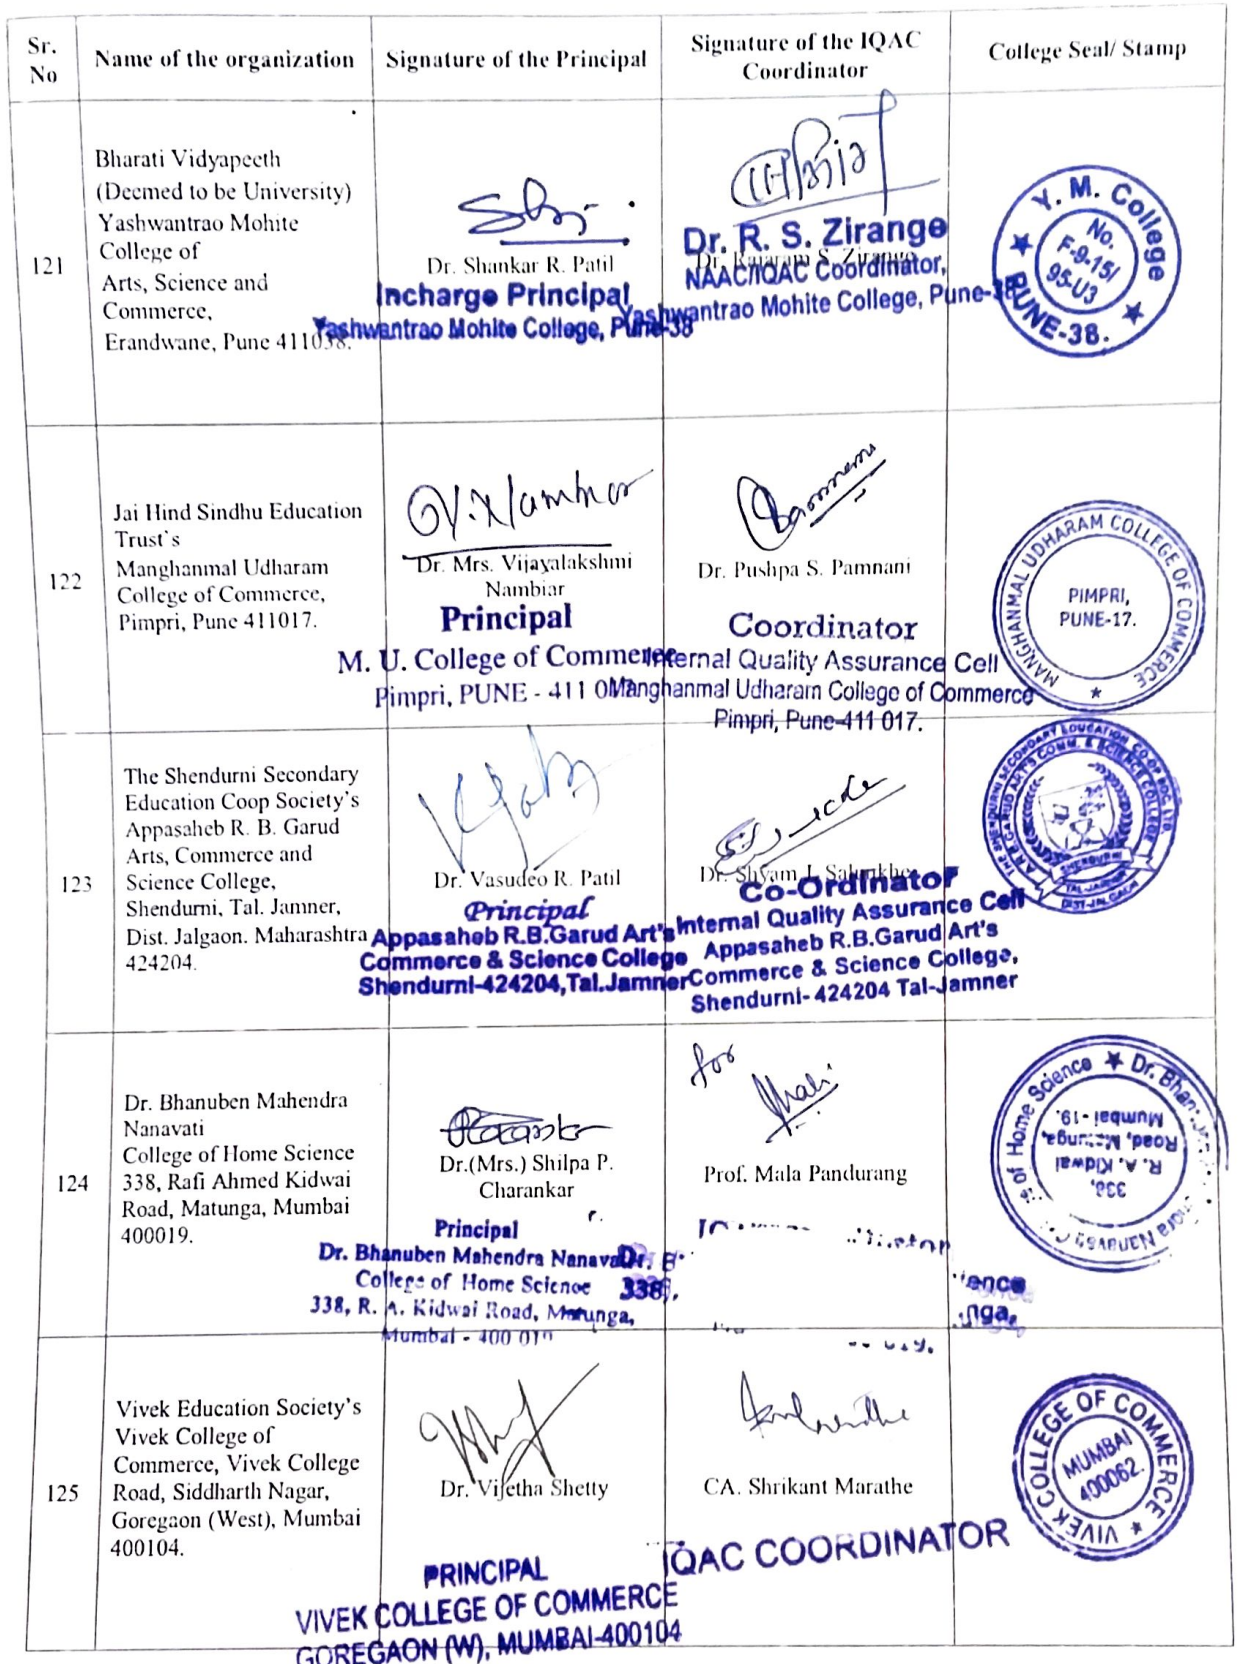 Sr. No
Name of the organization
Signature of the Principal
Signature of the IQAC
Coordinator
College Seal/ Stamp
121
Bharati Vidyapeeth
(Deemed to be University)
Yashwantrao Mohite
College of
Arts, Science and
Commerce,
Erandwane, Pune 411038.
Dr. Shankar R. Patil
Incharge Principal
Yashwantrao Mohite College, Pune-38
Dr. R. S. Zirange
Dr. Rajaram S. Zirange
NAAC/IQAC Coordinator,
Yashwantrao Mohite College, Pune-38
Y. M. College
No.
F-9-15/
95-U3
PUNE-38.
122
Jai Hind Sindhu Education
Trust's
Manghanmal Udharam
College of Commerce,
Pimpri, Pune 411017.
Dr. Mrs. Vijayalakshmi
Nambiar
Principal
M. U. College of Commerce
Pimpri, PUNE - 411 0
Dr. Pushpa S. Pamnani
Coordinator
Internal Quality Assurance Cell
Manghanmal Udharam College of Commerce
Pimpri, Pune-411 017.
MANGHANMAL UDHARAM COLLEGE OF COMMERCE
PIMPRI,
PUNE-17.
123
The Shendurni Secondary
Education Coop Society's
Appasaheb R. B. Garud
Arts, Commerce and
Science College,
Shendurni, Tal. Jamner,
Dist. Jalgaon. Maharashtra
424204.
Dr. Vasudeo R. Patil
Principal
Appasaheb R.B.Garud Art's
Commerce & Science College
Shendurni-424204,Tal.Jamner
Dr. Shyam J. Salunkhe
Co-Ordinator
Internal Quality Assurance Cell
Appasaheb R.B.Garud Art's
Commerce & Science College,
Shendurni- 424204 Tal-Jamner
THE SHENDURNI SECONDARY EDUCATION CO-OP SOC. LTD.
A.R.B.GARUD ART'S COMM. & SCIENCE COLLEGE
SHENDURNI
TAL-JAMNER
DIST-JALGAON
124
Dr. Bhanuben Mahendra
Nanavati
College of Home Science
338, Rafi Ahmed Kidwai
Road, Matunga, Mumbai
400019.
Dr.(Mrs.) Shilpa P.
Charankar
Principal
Dr. Bhanuben Mahendra Nanavati
College of Home Science
338, R. A. Kidwai Road, Matunga,
Mumbai - 400 019
for
Prof. Mala Pandurang
Dr. B
338,
ience
nga,
019.
of Home Science
Dr. Bhan
Nanavati
338,
R. A. Kidwai
Road, Matunga,
Mumbai - 19.
125
Vivek Education Society's
Vivek College of
Commerce, Vivek College
Road, Siddharth Nagar,
Goregaon (West), Mumbai
400104.
Dr. Vijetha Shetty
PRINCIPAL
VIVEK COLLEGE OF COMMERCE
GOREGAON (W), MUMBAI-400104
CA. Shrikant Marathe
IQAC COORDINATOR
VIVEK COLLEGE OF COMMERCE
MUMBAI
400062.